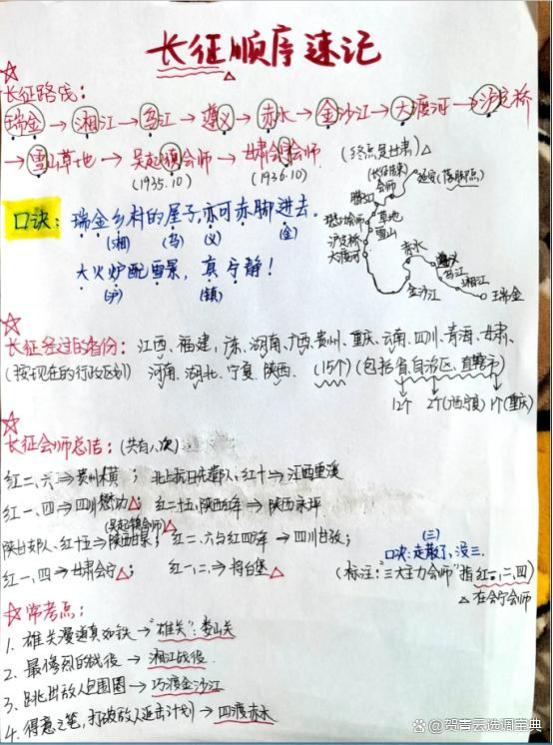 长征顺序速记
长征路线:
瑞金→湘江→乌江→遵义→赤水→金沙江→大渡河→泸定桥
→雪山草地→吴起镇会师→甘肃会宁会师. (终点是甘肃)△
(1935.10) (1936.10)
口诀: 瑞金乡村的屋子,亦可赤脚进去.
(湘) (乌) (义) (金)
大火炉配雪景, 真宁静!
(沪) (镇)
会师
延安(落脚点)
腊子口
草地
雪山
泸定桥
大渡河
赤水
金沙江
遵义
乌江
湘江
瑞金
长征经过的省份: 江西、福建、广东、湖南、广西、贵州、重庆、云南、四川、青海、甘肃、
(按现在的行政区划) 河南、湖北、宁夏、陕西. (15个)(包括省、自治区、直辖市)
12个 2个(广西宁夏) 1个(重庆)
长征会师总结: (共有八次)
红二、六⇒贵州木黄; 北上抗日先遣队、红十⇒江西重溪
红一、四⇒四川懋功△; 红二十五、陕西红军⇒陕西永坪
(吴起镇会师)△
陕甘支队、红十五⇒陕西甘泉; 红二、六与红四方军⇒四川甘孜;
红一、四⇒甘肃会宁△; 红一、二、⇒将台堡△
(三)
口诀:走散了,没三.
(标注:“三大主力会师”指红一、二、四)
△在会宁会师
常考点:
1. 雄关漫道真如铁→“雄关”:娄山关
2. 最惨烈的战役→湘江战役.
3. 跳出敌人包围圈→巧渡金沙江
4. 得意之笔,打破敌人追击计划→四渡赤水
@贺吉云选调宝典